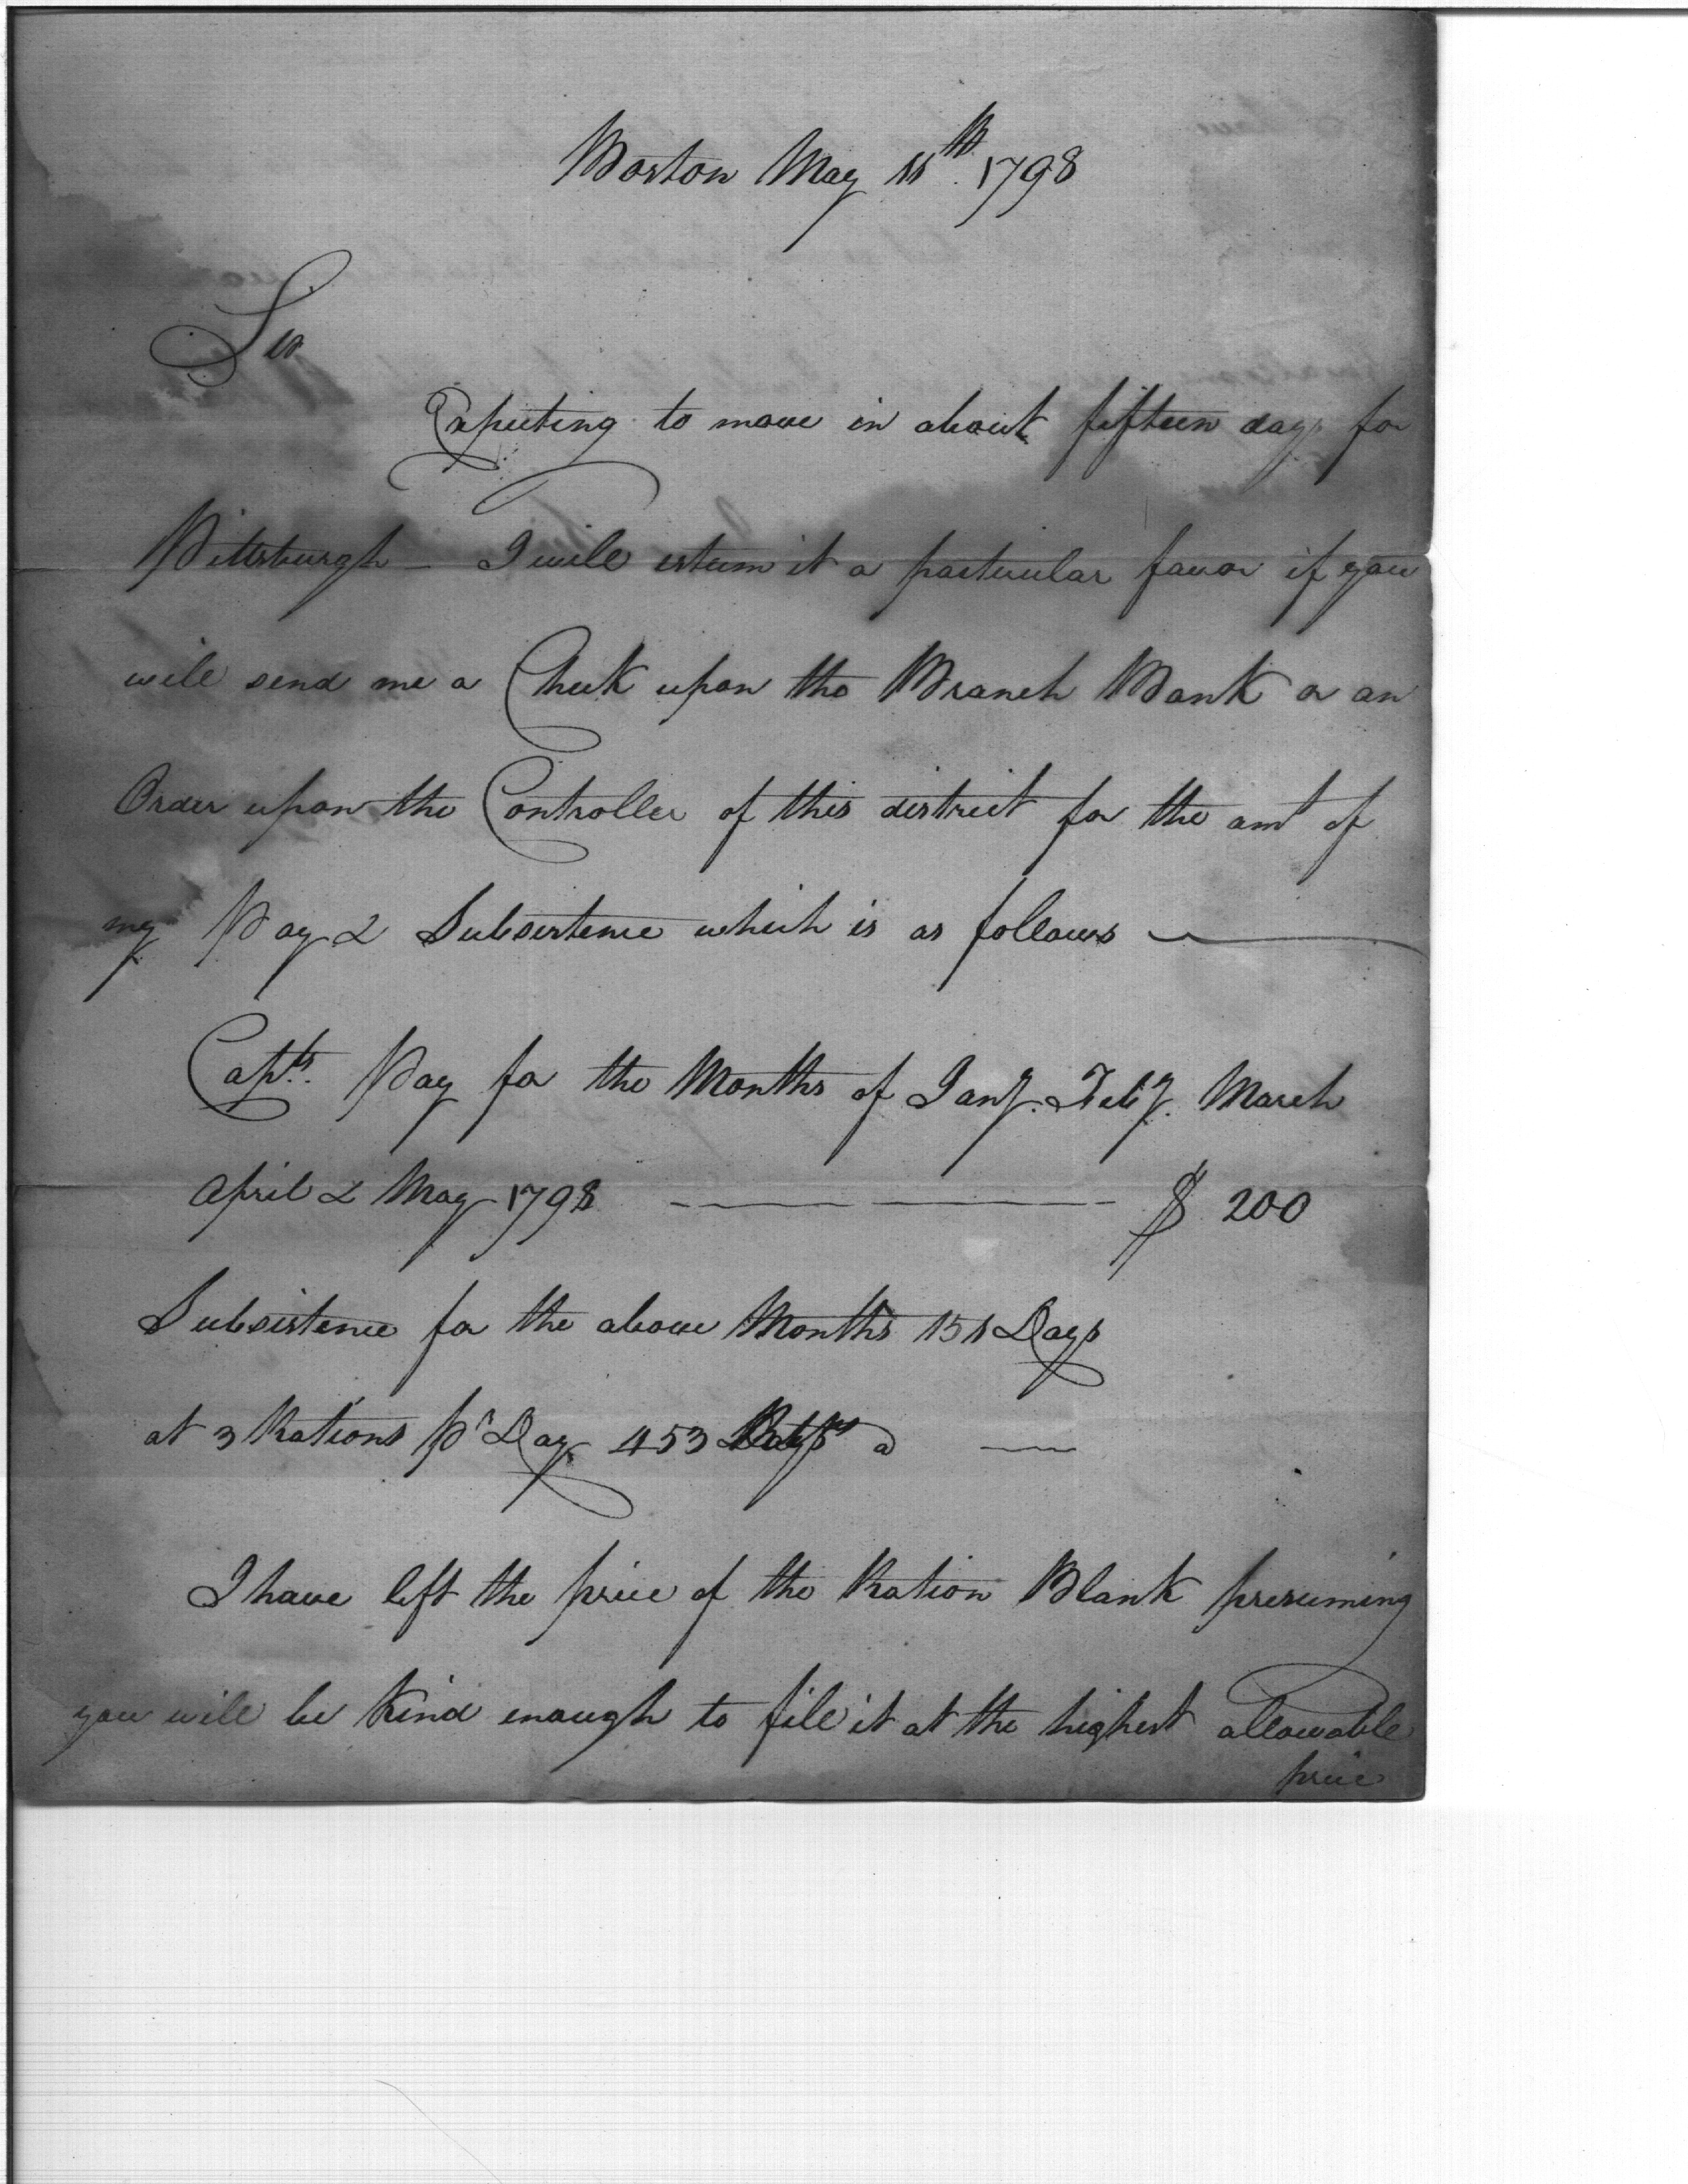 Boston May 11th. 1798
Sir
Expecting to move in about fifteen days for
Pittsburgh – I will esteem it a particular favor if you
will send me a Check upon the Branch Bank or an
Order upon the Controller of this district for the amt of
my Pay & Subsistence which is as follows —
Capts. Pay for the Months of Jany. Feby. March
April & May 1798 — — — $ 200
Subsistence for the above Months 151 Days
at 3 Rations Pr Day 453 a —
I have left the price of the Ration Blank presuming
you will be kind enough to fill it at the highest allowable
price